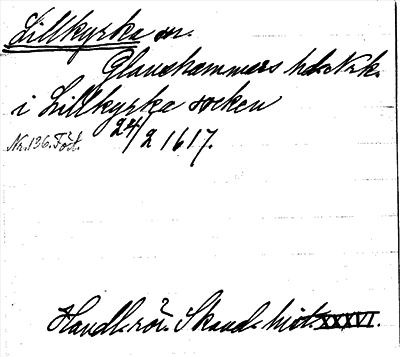 Lillkyrka sn.
Glanshammars hd. Nrk.
i Lillkyrka socken
24/2 1617.
Nr. 136. Fört.
Handl. rör. Skand. hist. XXXVI.